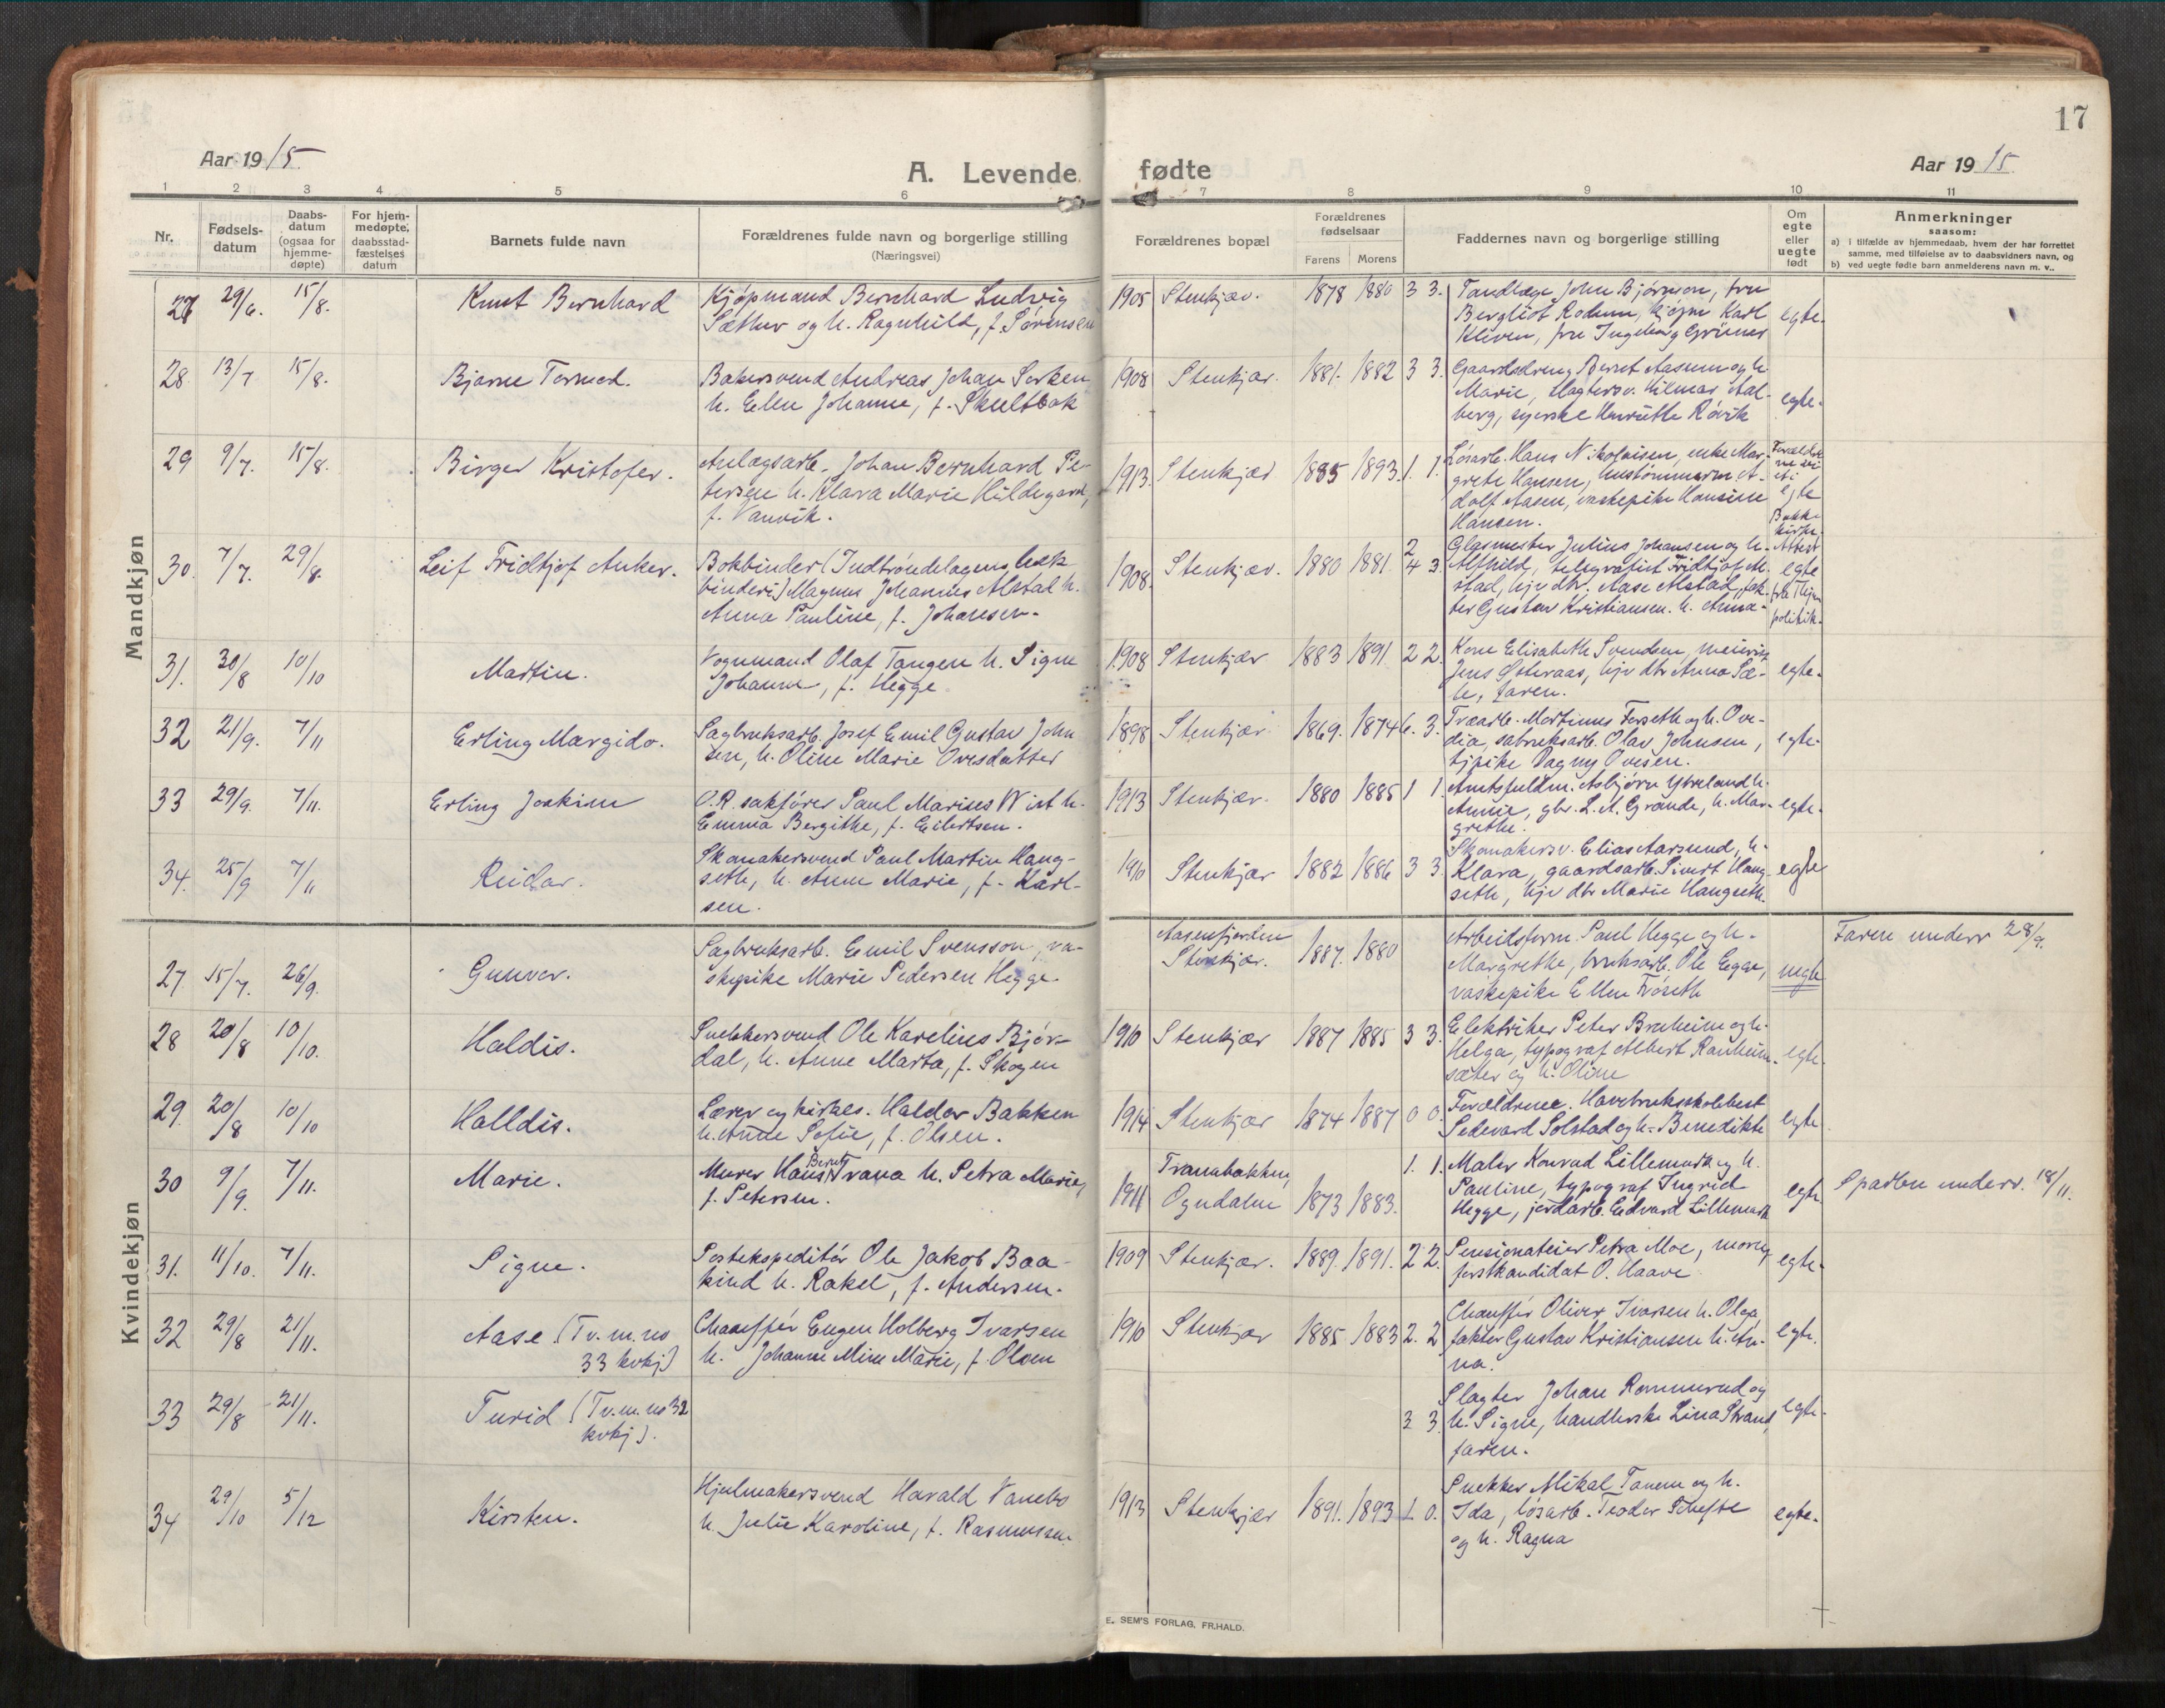 17
Aar 19 15
A. Levende
fødte
Aar 19 15
1 2 3 4 5 6 7 8 9 10 11
Nr.
Fødsels-
datum
Daabs-
datum
(ogsaa for
hjemme-
døpte)
For hjem-
medøpte,
daabsstad-
fæstelses
datum
Barnets fulde navn
Forældrenes fulde navn og borgerlige stilling
(Næringsvei)
Forældrenes bopæl
Forældrenes
fødselsaar
Farens Morens
Faddernes navn og borgerlige stilling
Om
egte
eller
uegte
født
Anmerkninger
saasom:
a) i tilfælde av hjemmedaab, hvem der har forrettet
samme, med tilføielse av to daabsvidners navn, og
b) ved uegte fødte barn anmelderens navn m. v..
Mandkjøn
27 29/6. 15/8. Knut Bernhard
Kjøpmand Bernhard Ludvig
Sæther og h. Ragnhild, f. Sørensen
1905 Stenkjær. 1878 1880 3 3.
Tandlæge John Bjørnson, fru
Bergliot Rodum, kjøpm Karl
Kleven, fru Ingeborg Grünes
egte.
28. 13/7 15/8. Bjarne Tormod.
Bakersvend Andreas Johan
h. Ellen Johanne, f.
1908 Stenkjær. 1881. 1882 3 3.
Gaardsdreng Bernt Aasum og h.
Marie, slagtersv. Hilmar Aal-
berg, syerske Henriette Røvik
egte.
29 9/7. 15/8. Birger Kristofer.
Anlægsarb. Johan Bernhard Pe-
tersen h. Klara Marie Hildegard,
f. Vanvik.
1913. Stenkjær 1885 1893. 1. 1.
Løsarb. Hans Nikolaisen, enke Mar-
grete Hansen, A-
dolf Aasen, vaskepike Hansine
Hansen.
egte
30. 7/7. 29/8. Leif Fridtjof Anker.
Bokbinder (Indtrøndelagens bok-
binderi) Magnus Johannes Alstad h.
Anna Pauline, f. Johansen.
1908. Stenkjær. 1880 1881. 2
4 3.
Glasmester Julius Johansen og h.
Alfhild, telegrafist Fridtjof Al-
stad, hjv dtr. Aase Alstad, fak-
tor Gustav Kristiansen. h. Anna.
egte
31. 30/8 10/10 Martin.
Vognmand Olaf Tangen h. Signe
Johanne, f. Hegge
1908 Stenkjær 1883 1891 2 2.
Kone Elisabeth Svendsen,
Jens Østeraas, hjv dtr Anna
faren.
egte.
32 21/9. 7/11 Erling Margido.
Sagbruksarb. Josef Emil Gustav John
sen, h. Oline Marie Ovesdatter
1898 Stenkjær 1869. 1874 6. 3.
Træarb. Martinus Forseth og h. Ove-
dia, sabruksarb. Olav Johnsen,
tjpike Dagny Ovesen.
egte.
33 29/9. 7/11. Erling Joakim
O.R. sakfører Paul Marius Wist h.
Emma Bergithe, f. Eilertsen.
1913 Stenkjær. 1880 1885 1 1.
Amtsfuldm. Asbjørn h.
Annie, gbr. L. A. Grande, h. Mar-
grethe.
egte.
34. 25/9 7/11 Reidar.
Skomakersvend Paul Martin Haug-
seth, h. Anne Marie, f. Karl-
sen.
1910 Stenkjær 1882 1886 3 3.
Skomakersv. Elias Aarsund, h.
Klara, gaardsarb. Sivert Haug-
seth, hjv dtr Marie Haugseth.
egte
Kvindekjøn
27. 15/7. 26/9. Gunvor.
Sagbruksarb. Emil Svensson, va-
skepike Marie Pedersen Hegge.
Aasenfjorden
Stenkjær. 1887. 1880
Arbeidsform. Paul Hegge og h.
Margrethe, bruksarb. Ole Egge,
vaskepike Ellen Frøseth
uegte
Faren underr 28/9.
28 20/8 10/10. Haldis.
Snekkersvend Ole Karelius Bjør-
dal, h. Anne Marta, f. Skogen
1910 Stenkjær 1887 1885 3 3.
Elektriker Peter Bruheim og h.
Helga, typograf Albert Ranheim-
sæter og h. Oline
egte.
29. 20/8 10/10 Halldis.
Lærer og kirkes. Haldor Bakken
h. Anne Sofie, f. Olsen.
1914 Stenkjær 1874 1887 0 0.
Forældrene. Havebruksskolebest
Sedevard Solstad og h. Benedikte
egte
30 9/9. 7/11. Marie.
Murer Hans Bernt Trana h. Petra Marie,
f. Petersen.
1911 Tranabakken,
Ogndalen 1873 1883. 1. 1.
Maler Konrad Lillemark og h.
Pauline, typograf Ingrid
Hegge, jordarb. Edvard Lillemark
egte
underr. 18/11.
31. 11/10. 7/11. Signe.
Postekspeditør Ole Jakob Baa-
kind h. Rakel, f. Andersen.
1909 Stenkjær. 1889. 1891. 2 2.
Pensionateier Petra Moe, moren,
forstkandidat O. Haave
egte.
32 29/8 21/11. Aase (Tv. m. no
33 kvkj)
Chauffør Eugen Holberg Ivarsen
h. Johanne Mine Marie, f. Olsen
1910 Stenkjær 1885 1883 2. 2
Chauffør Oliver Ivarsen h. Olga,
faktor Gustav Kristiansen h. An-
na.
egte.
33 29/8 21/11. Turid (Tv. m. no 32
kvkj).
3 3.
Slagter Johan Rommerud og
h. Signe, handlerske Lina Strand,
faren.
egte.
34 29/10 5/12 Kirsten.
Hjulmakersvend Harald Vanebo
h. Julie Karoline, f. Rasmussen
1913 Stenkjær 1891. 1893 1. 0.
Snekker Mikal Tanem og h.
Ida, løsarb. Teodor Schefte
og h. Ragna
egte.
E. SEM'S FORLAG, FR.HALD.